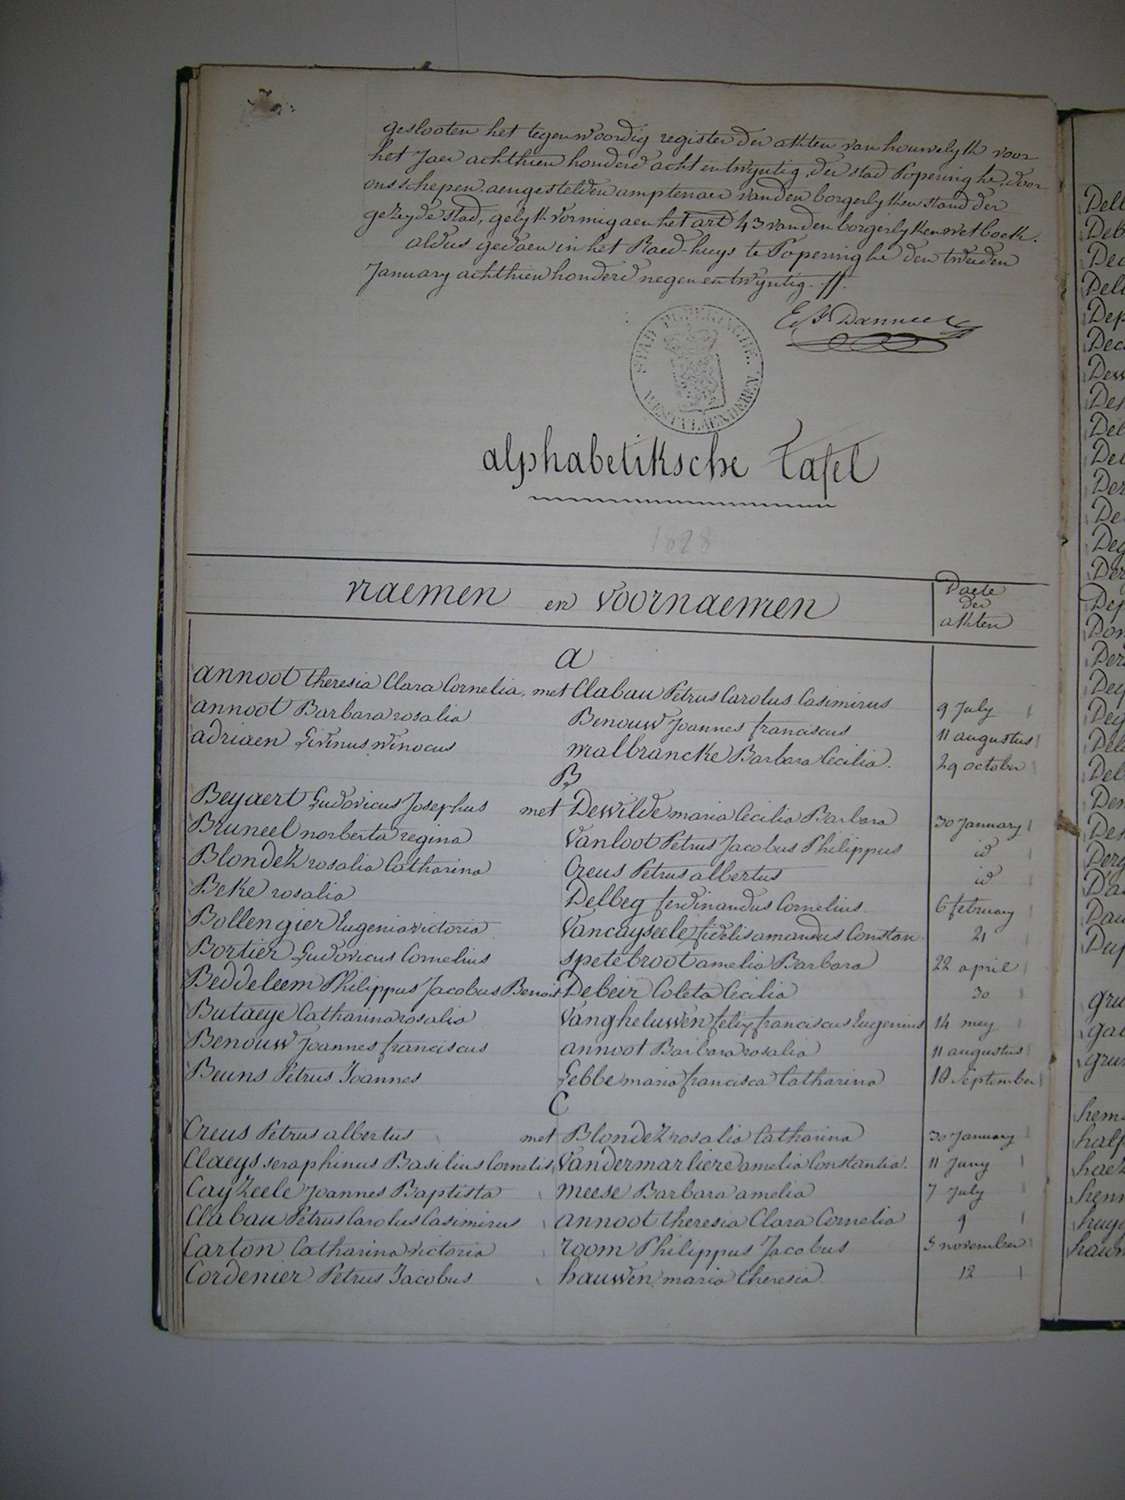 geslooten het tegenwoordig register der akten van houwelyk voor
het Jaer achthien honderd acht en twyntig, der stad Poperinghe, door
ons schepen aengestelden amptenaer van den borgerlyken stand der
gezeyde stad, gelyk vormig aen het art 43 van den borgerlyken wetboek.
aldus gedaen in het Raed-huys te Poperinghe den tweeden
January achthien honderd negen en twyntig. //.
STAD POPERINGHE.
WESTVLAENDEREN
alphabetiksche tafel
1828
naemen en voornaemen
Daete der akten
a
annoot theresia Clara Cornelia, met Clabau Petrus Carolus Casimirus 9 July
annoot Barbara rosalia Benouw Joannes franciscus 11 augustus
adriaen Livinus winocus malbrancke Barbara Cecilia. 29 october
B
Beyaert Ludovicus Josephus met Dewilde maria Cecilia Barbara 30 January
Bruneel norberta regina Vanloot Petrus Jacobus Philippus id
Blondez rosalia Catharina Creus Petrus albertus id
Beke rosalia Delbeg ferdinandus Cornelius. 6 february
Bollengier Eugenia victoria Vancayseele fidelis amandus Constan. 21
Bortier Ludovicus Cornelius spetebroot amelia Barbara 22 april
Beddeleem Philippus Jacobus Benoit Debeir Coleta Cecilia 30
Butaeye Catharina rosalia Vangheluwen felix franciscus Eugenius 14 mey
Benouw Joannes franciscus annoot Barbara rosalia 11 augustus
Beuns Petrus Joannes Lebbe maria francisca Catharina 10 September
C
Creus Petrus albertus met Blondez rosalia Catharina 30 January
Claeys seraphinus Basilius Cornelis, Vandermarliere amelia Constantia. 11 Juny
Cayzeele Joannes Baptista meese Barbara amelia 7 July
Clabau Petrus Carolus Casimirus annoot theresia Clara Cornelia 9
Carton Catharina victoria room Philippus Jacobus 5 november
Cordenier Petrus Jacobus hauwen maria theresia 12